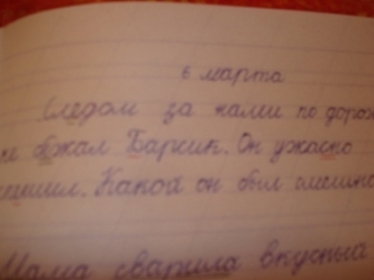 6 марта
Следом за нами по дорож
ке бежал Барсик. Он ужасно
спешил. Какой он был смешно
Мама сварила вкусный